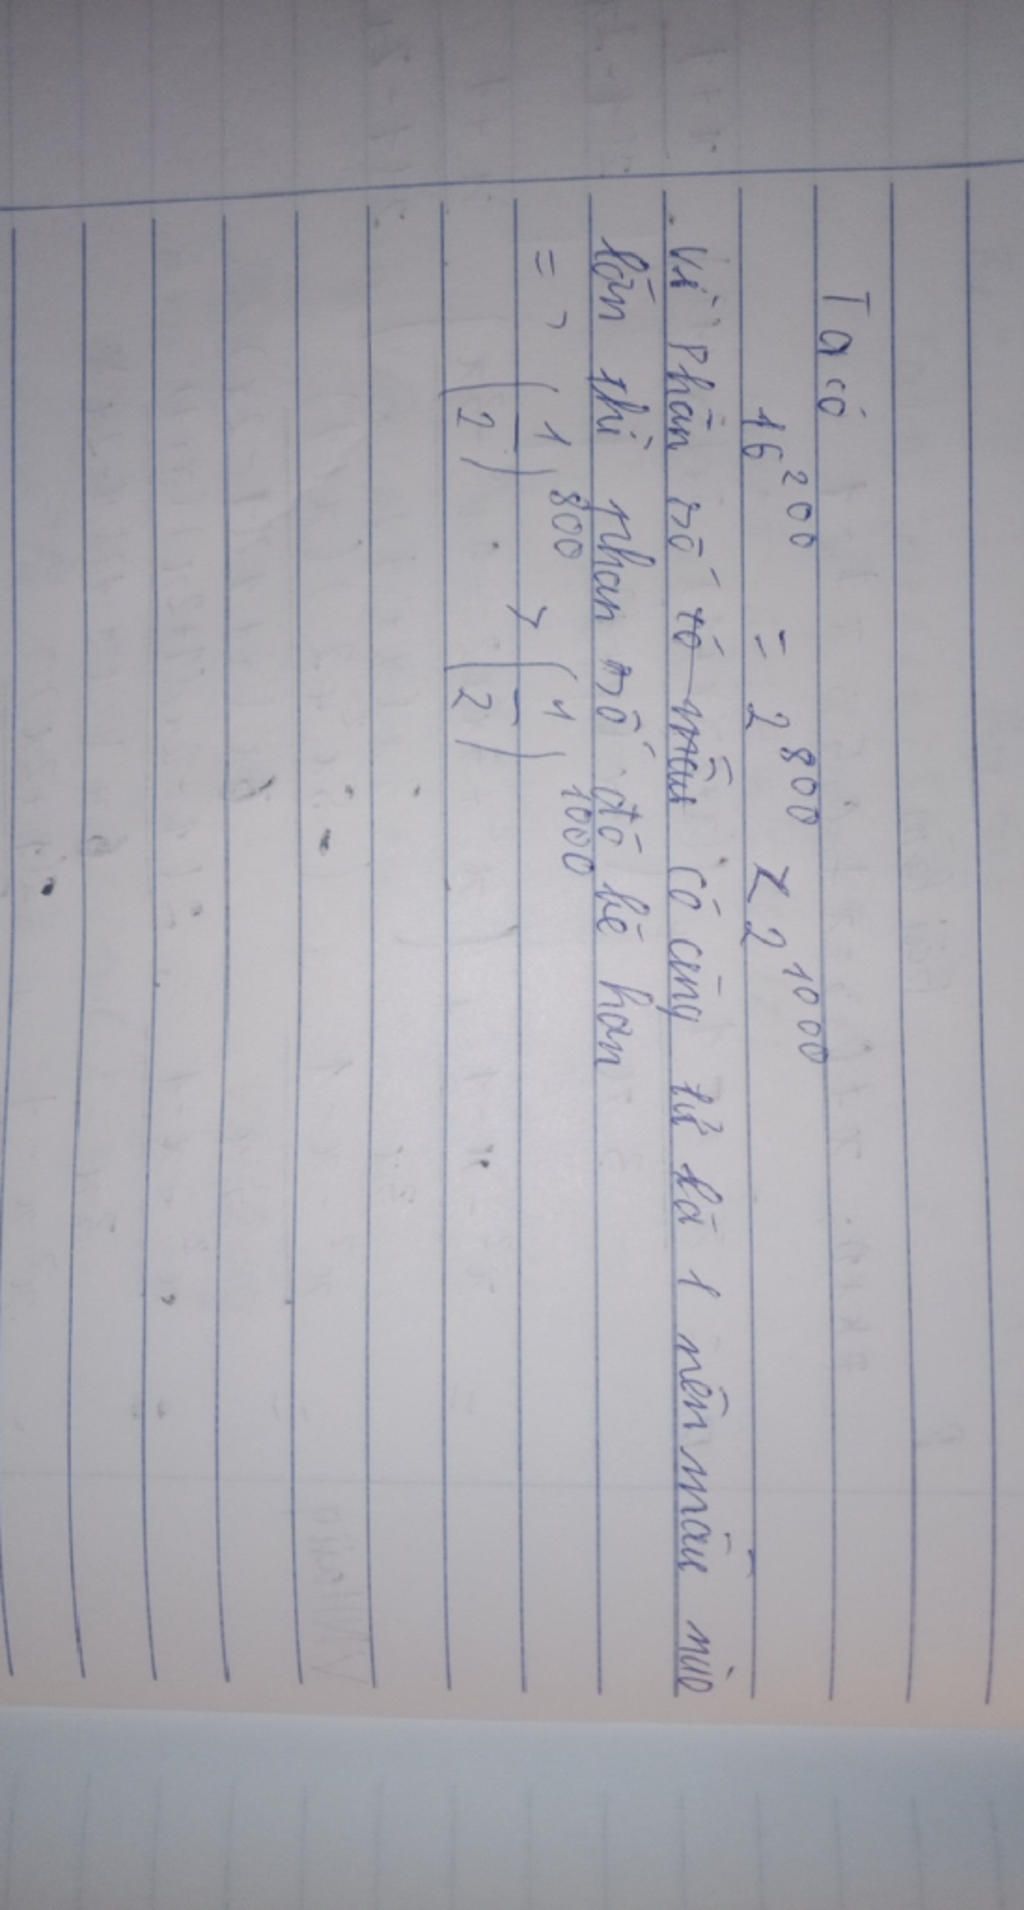 Ta có
16^200 = 2^800 < 2^1000
. Vì phân số có cùng tử là 1 nên mẫu nào
lớn thì phan số đó bé hơn
=> (1/2)^800 > (1/2)^1000